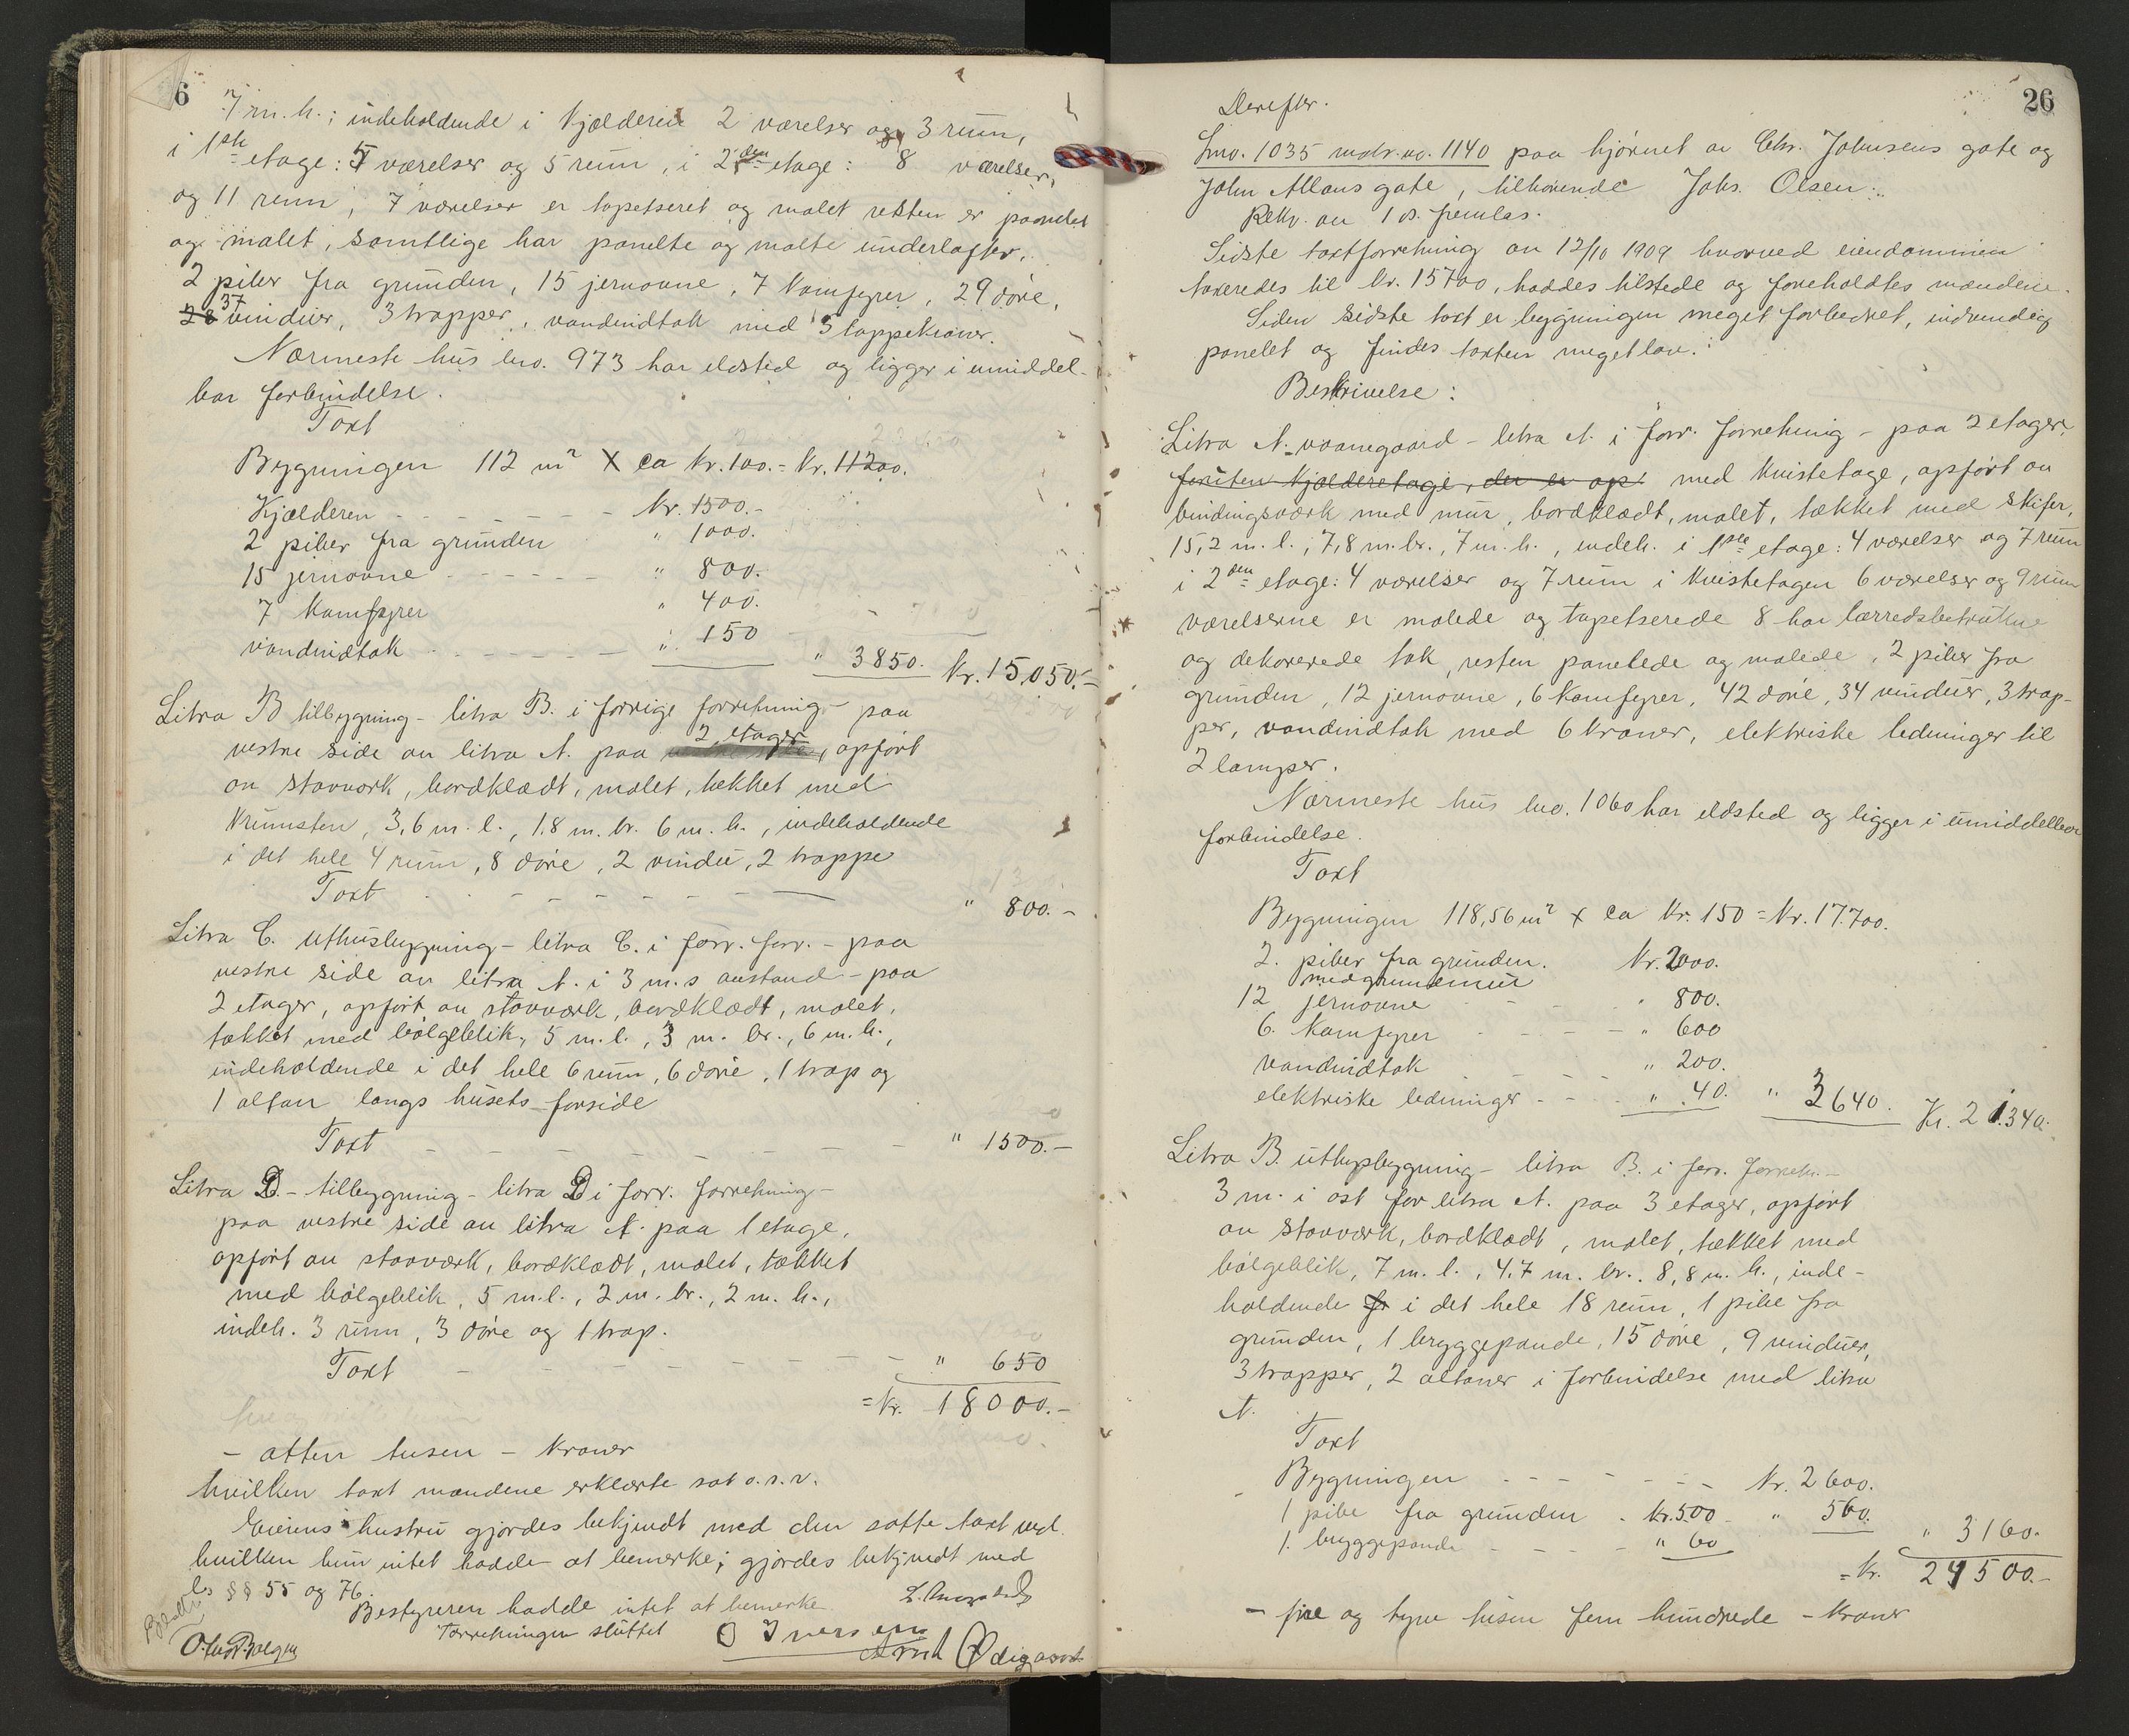 6
7 m. h.; indeholdende i kjælderen 2 værelser og 3 rum,
i 1ste etage: 5 værelser og 5 rum, i 2den etage: 8 værelser,
og 11 rum, 7 værelser er tapetseret og malet resten er panelet
og malet, samtlige har panelte og malte underlofter,
2 piber fra grunden, 15 jernovne, 7 komfyrer, 29 döre,
28 37 vinduer, 3 trapper, vandindtak med 3 tappekraner.
Nærmeste hus bno. 973 har ildsted og ligger i umiddel-
bar forbindelse.
Taxt
Bygningen 112 m² X ca kr. 100.- = Kr. 11200.
Kjælderen - - - - Kr. 1500.-
2 piber fra grunden " 1000.
15 jernovne - - - - - " 800.
7 komfyrer " 400.
vandindtak - - - - - " 150 " 3850. Kr. 15,050.-
Litra B tilbygning - litra B. i forrige forretning - paa
vestre side av litra A. paa 2 etager, opført
av stavverk, bordklædt, malet, tækket med
krumsten, 3,6 m. l., 1,8 m. br. 6 m. h., indeholdende
i det hele 4 rum, 8 döre, 2 vindu, 2 trappe
Taxt - - - - - - " 800.-
Litra C. uthusbygning - litra C. i forr. forr. - paa
vestre side av litra A. i 3 m.s avstand - paa
2 etager, opført av stavværk, bordklædt, malet,
tækket med bølgeblik, 5 m. l., 3 m. br., 6 m. h.,
indeholdende i det hele 6 rum, 6 döre, 1 trap og
1 altan langs husets forside
Taxt - - - - - - " 1500.-
Litra D. - tilbygning - litra D i forr. forretning -
paa vestre side av litra A. paa 1 etage,
opført av stavværk, bordklædt, malet, tækket
med bølgeblik, 5 m.l., 2 m. br., 2 m. h.,
indeh. 3 rum, 3 döre og 1 trap.
Taxt - - - - - - " 650
= Kr. 18000.-
- atten tusen - kroner
hvilken taxt mændene erklærte sat o. s. v.
Eierens hustru gjordes bekjendt med den satte taxt ved
hvilken hun intet hadde at bemerke; gjordes bekjendt med
§§ 55 og 76.
Bestyreren hadde intet at bemerke
Forretningen sluttet
O Iversen
26
Derefter.
Bno. 1035 matr. no. 1140 paa hjørnet av Chr. Johnsens gate og
John Allans gate, tilhørende Johs. Olsen.
Rekv. av 1 ds. fremlas.
Sidste taxtforretning av 12/10 1909 hvorved eiendommen
taxeredes til kr. 15700, haddes tilstede og foreholdtes mændene.
Siden sidste taxt er bygningen meget forbedret, indvendig
panelet og findes taxten meget lav.
Beskrivelse:
Litra A. vaanegaard - litra A. i forr. forretning - paa 2 etager,
foruten kjælderetage, der er op med kvistetage, opført av
bindingsværk med mur, bordklædt, malet, tækket med skifer,
15,2 m. l., 7,8 m. br., 7 m. h., indeh. i 1ste etage: 4 værelser og 7 rum
i 2den etage: 4 værelser og 7 rum i kvistetagen 6 værelser og 9 rum
værelserne er malede og tapetserede 8 har lærredsbetrukne
og dekorerede tak, resten panelede og malede, 2 piber fra
grunden, 12 jernovne, 6 komfyrer, 42 döre, 34 vinduer, 3 trap-
per, vandindtak med 6 kraner, elektriske ledninger til
2 lamper.
Nærmeste hus bno. 1060 har ildsted og ligger i umiddelbar
forbindelse.
Taxt
Bygningen 118,56 m² x ca Kr. 150 = Kr. 17.700.
2. piber fra grunden. Kr. 2000.
med grundmur
12 jernovne - - - " 800.
6. komfyrer - - - - " 600
vandindtak " 200.
elektriske ledninger - - - " 40. " 3640. Kr. 21.340.
Litra B. uthusbygning - litra B. i forr. forretn. -
3 m. i øst for litra A. paa 3 etager, opført
av stavværk, bordklædt, malet, tækket med
bølgeblik, 7 m. l., 4,7 m. br., 8,8 m. h., inde-
holdende fr i det hele 18 rum, 1 pibe fra
grunden, 1 bryggepande, 15 döre, 9 vinduer,
3 trapper, 2 altaner i forbindelse med litra
A.
Taxt
Bygningen - - - - - - Kr. 2600.
1 pibe fra grunden - kr. 500 - " 560.
1. bryggepande - - - - " 60 " 3160.
= Kr. 24500.-
- fire og tyve tusen fem hundrede - kroner